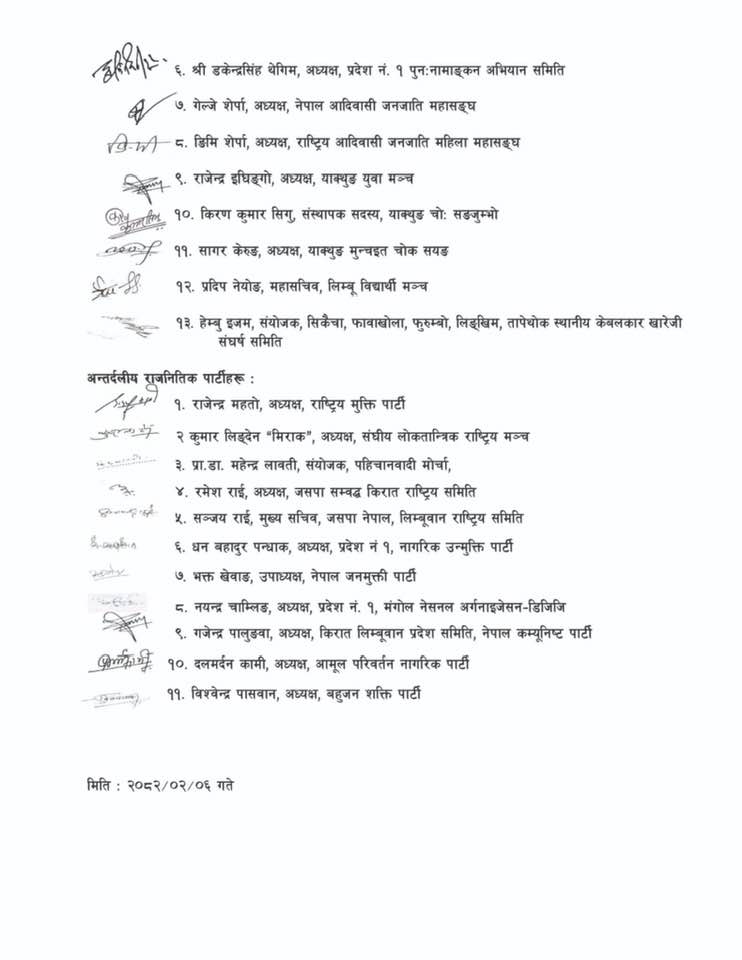 ६. श्री डकेन्द्रसिंह थेगिम, अध्यक्ष, प्रदेश नं. १ पुन:नामाङ्कन अभियान समिति
७. गेल्जे शेर्पा, अध्यक्ष, नेपाल आदिवासी जनजाति महासङ्घ
८. डिमि शेर्पा, अध्यक्ष, राष्ट्रिय आदिवासी जनजाति महिला महासङ्घ
९. राजेन्द्र इघिङ्गो, अध्यक्ष, याक्थुङ युवा मञ्च
१०. किरण कुमार सिगु, संस्थापक सदस्य, याक्थुङ चो: सङजुम्भो
११. सागर केरुङ, अध्यक्ष, याक्थुङ मुन्चइत चोक सयङ
१२. प्रदिप नेयोङ, महासचिव, लिम्बू विद्यार्थी मञ्च
१३. हेम्बु इजम, संयोजक, सिकैचा, फावाखोला, फुरुम्बो, लिङ्खिम, तापेथोक स्थानीय केबलकार खारेजी
संघर्ष समिति
अन्तर्दलीय राजनितिक पार्टीहरू :
१. राजेन्द्र महतो, अध्यक्ष, राष्ट्रिय मुक्ति पार्टी
२ कुमार लिङ्देन “मिराक”, अध्यक्ष, संघीय लोकतान्त्रिक राष्ट्रिय मञ्च
३. प्रा.डा. महेन्द्र लावती, संयोजक, पहिचानवादी मोर्चा,
४. रमेश राई, अध्यक्ष, जसपा सम्वद्ध किरात राष्ट्रिय समिति
५. सञ्जय राई, मुख्य सचिव, जसपा नेपाल, लिम्बूवान राष्ट्रिय समिति
६. धन बहादुर पन्धाक, अध्यक्ष, प्रदेश नं १, नागरिक उन्मुक्ति पार्टी
७. भक्त खेवाङ, उपाध्यक्ष, नेपाल जनमुक्ती पार्टी
८. नयन्द्र चाम्लिङ, अध्यक्ष, प्रदेश नं. १, मंगोल नेसनल अर्गनाइजेसन-डिजिजि
९. गजेन्द्र पालुङवा, अध्यक्ष, किरात लिम्बूवान प्रदेश समिति, नेपाल कम्यूनिष्ट पार्टी
१०. दलमर्दन कामी, अध्यक्ष, आमूल परिवर्तन नागरिक पार्टी
११. विश्वेन्द्र पासवान, अध्यक्ष, बहुजन शक्ति पार्टी
मिति : २०८२/०२/०६ गते